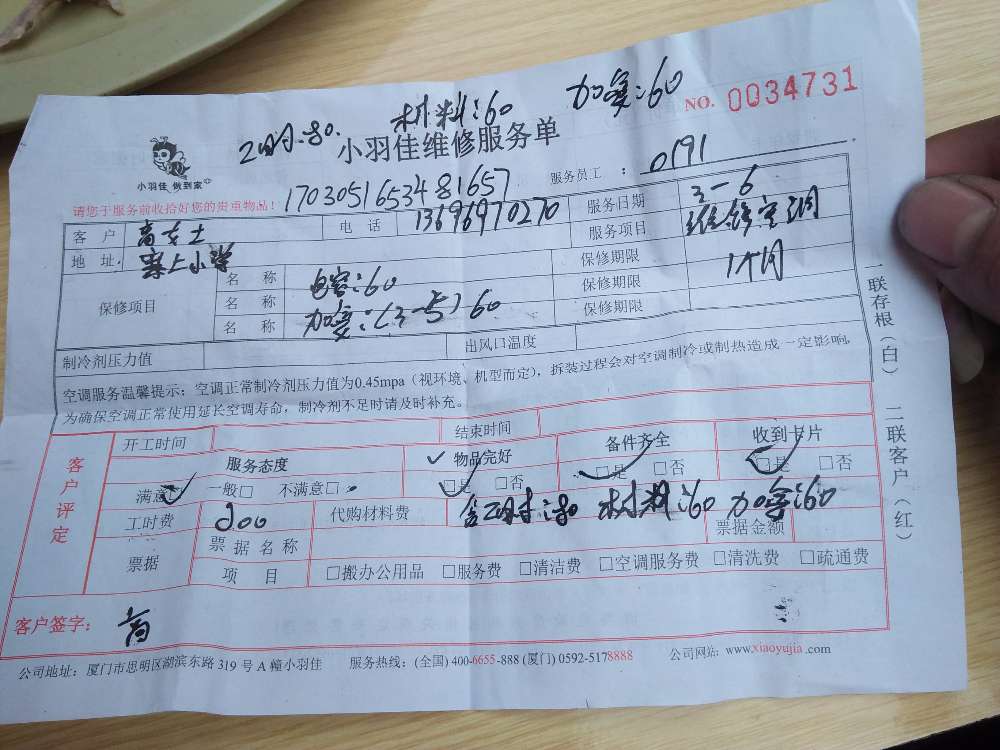 材料:60 加氟:60
工时:80. NO. 0034731
小羽佳维修服务单
小羽佳 做到家
请您于服务前收拾好您的贵重物品! 1703051653481657 服务员工: 0191
客 户 高女士 电 话 13696970270 服务日期 3-6
地 址. 小学 服务项目 维修空调
保修项目 名 称 电容:60 保修期限 1个月
名 称 加氟:(3-5)60 保修期限
名 称 保修期限
制冷剂压力值 出风口温度
空调服务温馨提示: 空调正常制冷剂压力值为0.45mpa(视环境、机型而定), 拆装过程会对空调制冷或制热造成一定影响,
为确保空调正常使用延长空调寿命, 制冷剂不足时请及时补充。
客户评定 开工时间 结束时间
服务态度 物品完好 备件齐全 收到卡片
满意 一般□ 不满意□ □是 □否 □是 □否 □是 □否
工时费 200 代购材料费 含工时:80 材料:60 加氟:60
票据 票据名称 票据金额
项 目 □搬办公用品 □服务费 □清洁费 □空调服务费 □清洗费 □疏通费
客户签字: 高
公司地址: 厦门市思明区湖滨东路 319 号 A 幢小羽佳 服务热线: (全国) 400-6655-888 (厦门) 0592-5178888 公司网站: www.xiaoyujia.com
一联存根(白) 二联客户(红)